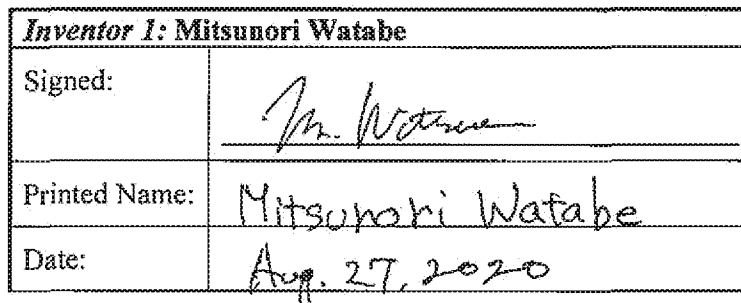 Inventor 1: Mitsunori Watabe
Signed:
M. Watabe
Printed Name: Mitsunori Watabe
Date: Aug. 27, 2020